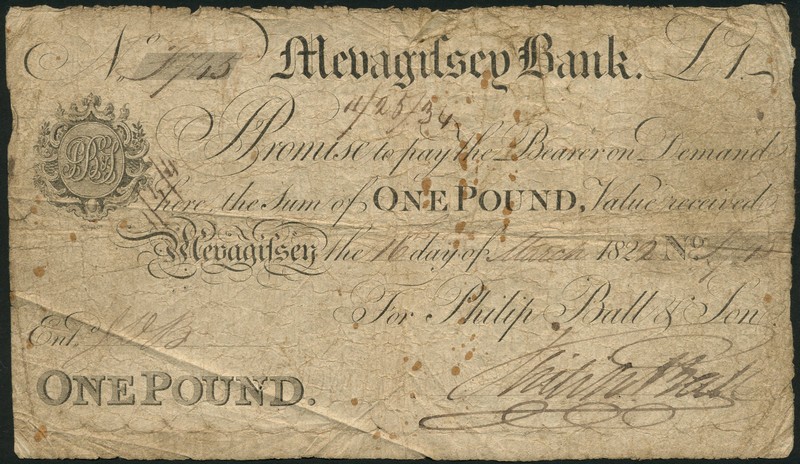 No
Mevagiſsey Bank. £1
I Promise to pay the Bearer on Demand
here the Sum of ONE POUND, Value received
Mevagiſsey the 16 day of March 1822 No
For Philip Ball & Son
Ent.
ONE POUND.
Philip Ball